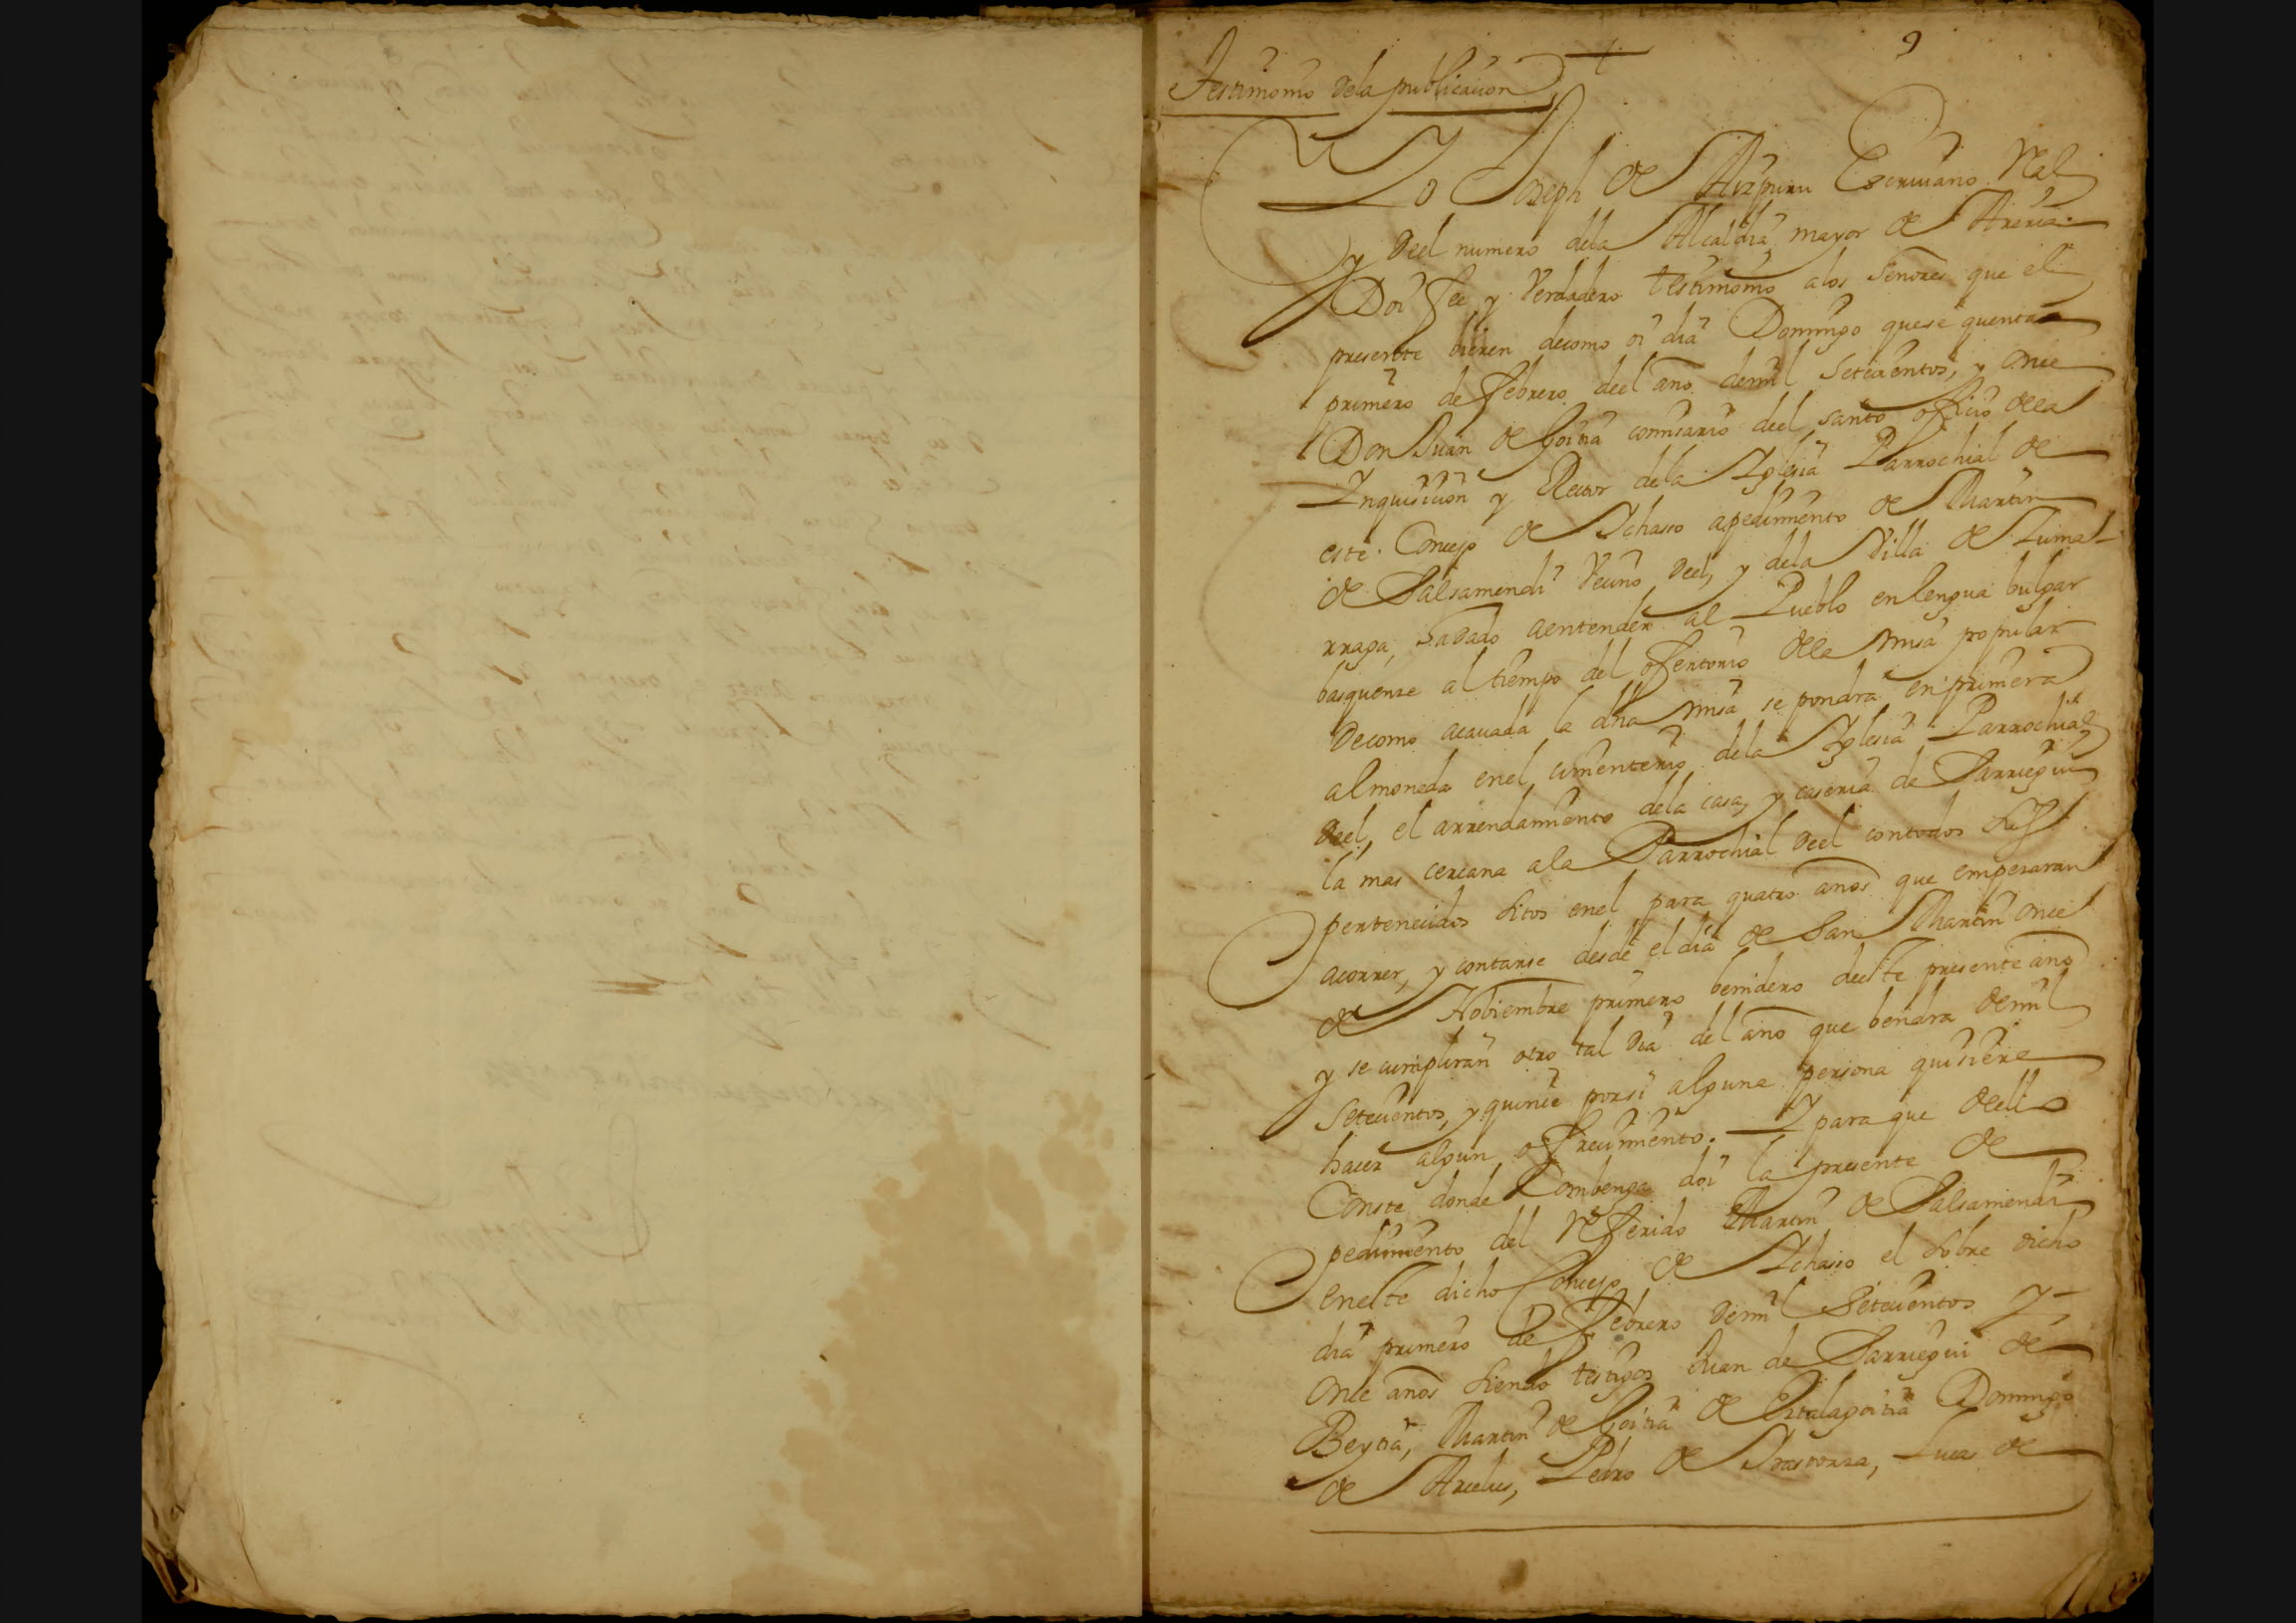 9
Testimonio dela publicacion
Yo Joseph de Aizpuru Escriuano Real
y deel numero dela Alcaldia mayor de Areria
Doi fee y Verdadero testimonio alos Señores que el
presente bieren decomo oi dia Domingo quese quenta
primero de febrero deel año demil setecientos, y once
Don Juan de Goitia comisario deel santo officio dela
Inquisicion y Rector dela Iglesia Parrochial de
este Concejo de Ichasso apedimiento de Martin
de Salsamendi Vecino deel, y dela Villa de Zuma-
rraga, adado aentender al Pueblo enlengua bulgar
basquenze al tiempo del offertorio dela misa popular
decomo acauada la dha misa se pondra en primera
almoneda enel cimenterio dela Iglesia Parrochial
deel, el arrendamiento dela casa, y caseria de Sarriegui
la mas cercana ala Parrochial deel contodos sus
pertenecidos sitos enel para quatro años que empesaran
acorrer, y contarse desde el dia de San Martin once
de Nobiembre primero benidero deeste presente año
y se cumpliran otro tal dia del año que bendra demil
setecientos, y quince porsi alguna persona quisiere
hacer algun offrecimiento. Y para que dello
Conste donde Combenga doi la presente de
pedimiento del Referido Martin de Salsamendi
eneste dicho Concejo de Ichasso el sobre dicho
dia primero de Febrero demil Setecientos y
once años siendo testigos Juan de Sarriegui de
Beytia, Martin de Goitia de Ortalagoitia Domingo
de Arcelus, Pedro de Lucas de